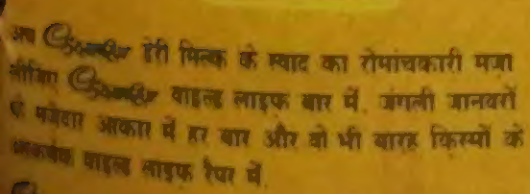 अब Cadbury डेरी मिल्क के स्वाद का रोमांचकारी मजा
लीजिए Cadbury वाइल्ड लाइफ बार में. जंगली जानवरों
के मजेदार आकार में हर बार और वो भी बारह किस्मों के
आकर्षक वाइल्ड लाइफ रैपर में.